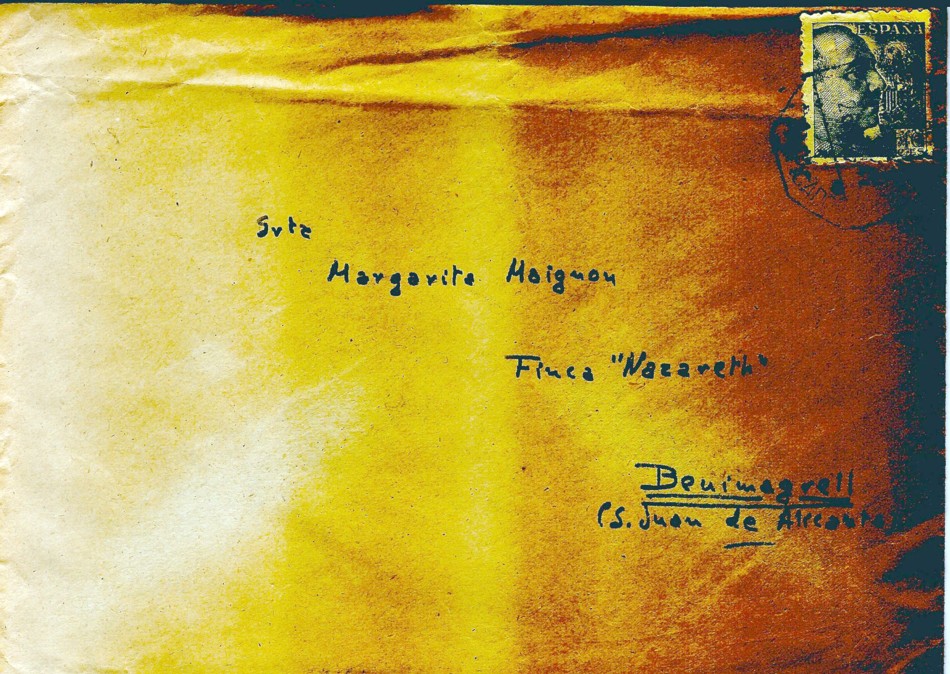 ESPAÑA
Srta
Margarita Maignon
Finca "Nazareth"
Benimagrell
(S. Juan de Alicante)